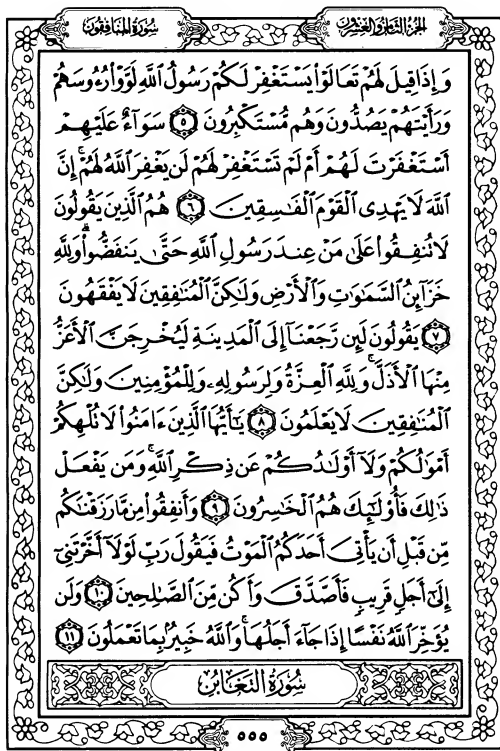 سُورَةُ المُنَافِقُونَ
الجُزْءُ الثَّامِنُ وَالعِشْرُونَ
وَإِذَا قِيلَ لَهُمْ تَعَالَوْا۟ يَسْتَغْفِرْ لَكُمْ رَسُولُ ٱللَّهِ لَوَّوْا۟ رُءُوسَهُمْ
وَرَأَيْتَهُمْ يَصُدُّونَ وَهُم مُّسْتَكْبِرُونَ ۝٥ سَوَآءٌ عَلَيْهِمْ
أَسْتَغْفَرْتَ لَهُمْ أَمْ لَمْ تَسْتَغْفِرْ لَهُمْ لَن يَغْفِرَ ٱللَّهُ لَهُمْ ۚ إِنَّ
ٱللَّهَ لَا يَهْدِى ٱلْقَوْمَ ٱلْفَـٰسِقِينَ ۝٦ هُمُ ٱلَّذِينَ يَقُولُونَ
لَا تُنفِقُوا۟ عَلَىٰ مَنْ عِندَ رَسُولِ ٱللَّهِ حَتَّىٰ يَنفَضُّوا۟ ۗ وَلِلَّهِ
خَزَآئِنُ ٱلسَّمَـٰوَٰتِ وَٱلْأَرْضِ وَلَـٰكِنَّ ٱلْمُنَـٰفِقِينَ لَا يَفْقَهُونَ
۝٧ يَقُولُونَ لَئِن رَّجَعْنَآ إِلَى ٱلْمَدِينَةِ لَيُخْرِجَنَّ ٱلْأَعَزُّ
مِنْهَا ٱلْأَذَلَّ ۚ وَلِلَّهِ ٱلْعِزَّةُ وَلِرَسُولِهِۦ وَلِلْمُؤْمِنِينَ وَلَـٰكِنَّ
ٱلْمُنَـٰفِقِينَ لَا يَعْلَمُونَ ۝٨ يَـٰٓأَيُّهَا ٱلَّذِينَ ءَامَنُوا۟ لَا تُلْهِكُمْ
أَمْوَٰلُكُمْ وَلَآ أَوْلَـٰدُكُمْ عَن ذِكْرِ ٱللَّهِ ۚ وَمَن يَفْعَلْ
ذَٰلِكَ فَأُو۟لَـٰٓئِكَ هُمُ ٱلْخَـٰسِرُونَ ۝٩ وَأَنفِقُوا۟ مِن مَّا رَزَقْنَـٰكُم
مِّن قَبْلِ أَن يَأْتِىَ أَحَدَكُمُ ٱلْمَوْتُ فَيَقُولَ رَبِّ لَوْلَآ أَخَّرْتَنِىٓ
إِلَىٰٓ أَجَلٍ قَرِيبٍ فَأَصَّدَّقَ وَأَكُن مِّنَ ٱلصَّـٰلِحِينَ ۝١٠ وَلَن
يُؤَخِّرَ ٱللَّهُ نَفْسًا إِذَا جَآءَ أَجَلُهَا ۚ وَٱللَّهُ خَبِيرٌۢ بِمَا تَعْمَلُونَ ۝١١
سُورَةُ التَّغَابُنِ
٥٥٥